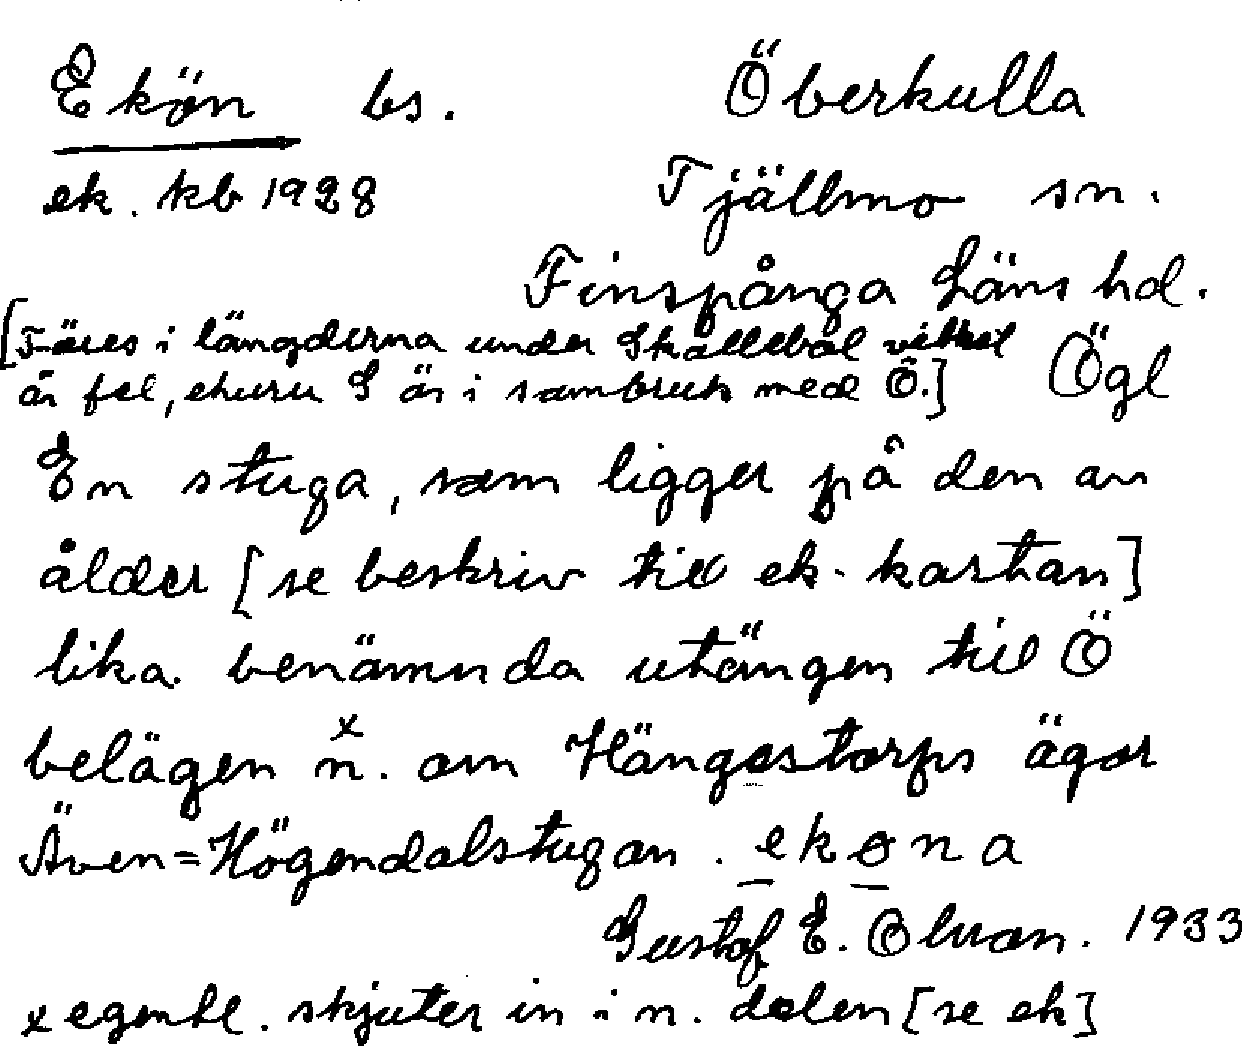 Ekön bs. Öberkulla
ek. kb 1928 Tjällmo sn.
Finspånga Läns hd.
[Föres i längderna under Skällebol vilket Ögl
är fel, ehuru S är i sambruk med Ö.]
En stuga, som ligger på den av
ålder [se beskriv till ek. kartan]
lika benämnda utängen till Ö
belägen n.x om Hängestorps ägor
Även=Högendalstugan. ekona
Gustaf E. Olvan. 1933
x egentl. skjuter in i n. delen [se ek]